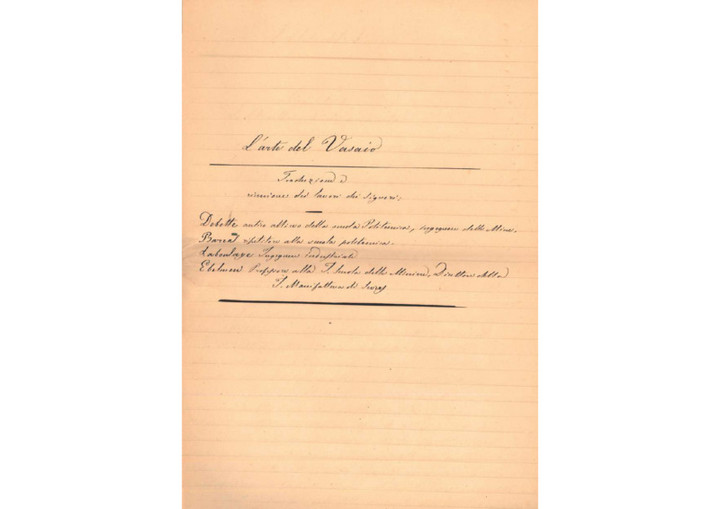 L'arte del Vasaio
Traduzione e
riunione dei lavori dei Signori,
Debette antico allievo della scuola Politecnica, ingegnere delle Mine,
Barral ripetitore alla scuola politecnica.
Laboulaye Ingegnere Industriale
Ebelmen Professore alla I. Scuola delle Miniere, Direttore della
I. Manifattura di Sevres